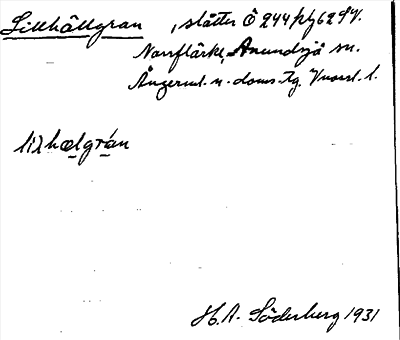 Lillhällgran, slåtter Ö 244 pkg 62 SV.
Norrflärke, Anundsjö sn.
Ångerml. n. doms. tg. Vnorrl. l.
lilhælgrán
H. A. Söderberg 1931